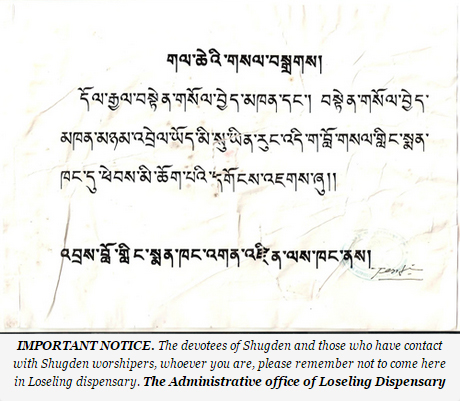 གལ་ཆེའི་གསལ་བསྒྲགས།
དོལ་རྒྱལ་བསྟེན་གསོལ་བྱེད་མཁན་དང་། བསྟེན་གསོལ་བྱེད་
མཁན་མཉམ་འབྲེལ་ཡོད་མི་སུ་ཡིན་རུང་འདི་ག་བློ་གསལ་གླིང་སྨན་
ཁང་དུ་ཕེབས་མི་ཆོག་པའི་དགོངས་འཇགས་ཞུ།།
འབྲས་བློ་གླིང་སྨན་ཁང་འགན་འཛིན་ལས་ཁང་ནས།
IMPORTANT NOTICE. The devotees of Shugden and those who have contact
with Shugden worshipers, whoever you are, please remember not to come here
in Loseling dispensary. The Administrative office of Loseling Dispensary